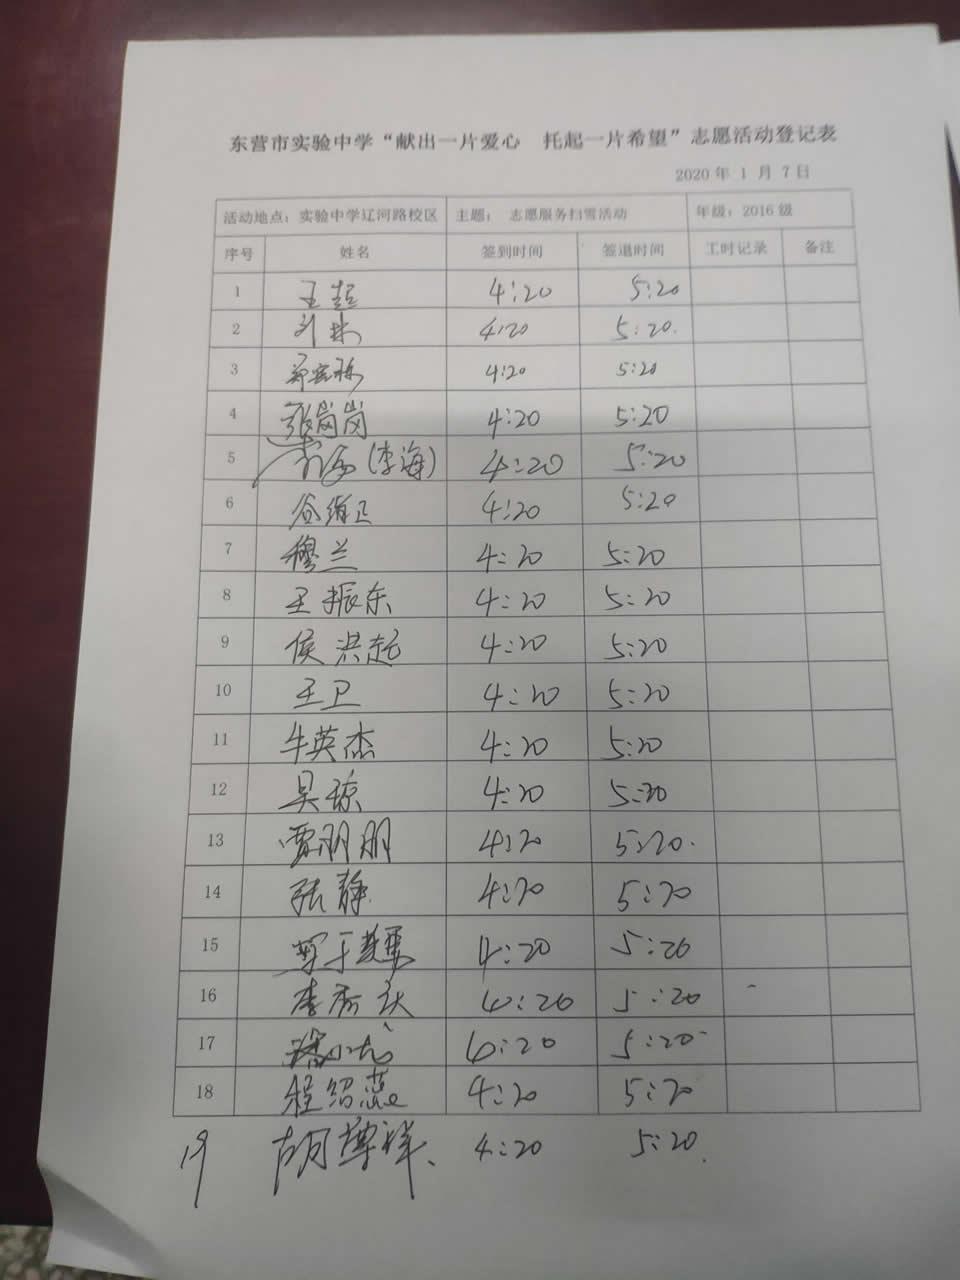 东营市实验中学“献出一片爱心 托起一片希望”志愿活动登记表
2020 年 1 月 7 日
活动地点：实验中学辽河路校区 主题： 志愿服务扫雪活动 年级：2016 级
序号 姓名 签到时间 签退时间 工时记录 备注
1 王超 4:20 5:20
2 刘 4:20 5:20.
3 4:20 5:20
4 张岗岗 4:20 5:20
5 (李海) 4:20 5:20
6 谷绪卫 4:20 5:20
7 穆兰 4:20 5:20
8 王振东 4:20 5:20
9 侯洪起 4:20 5:20
10 王卫 4:20 5:20
11 牛英杰 4:20 5:20
12 吴琼 4:20 5:20
13 贾朋朋 4:20 5:20.
14 张静 4:20 5:20
15 4:20 5:20
16 李 4:20 5:20
17 4:20 5:20
18 程绍燕 4:20 5:20
19 胡尊祥、 4:20 5:20.